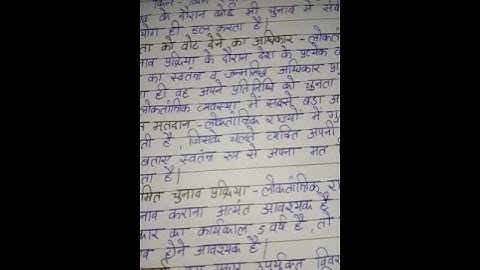 के दौरान कोई भी चुनाव से संब
योग ही हल करता है।
ता को वोट देने का अधिकार - लोकतां
नाव प्रक्रिया के दौरान देश के प्रत्येक
का स्वतंत्र व जन्मसिद्ध अधिकार
ही वह अपने प्रतिनिधि को चुनता
लोकतांत्रिक व्यवस्था में सबसे बड़ा अ
मतदान - लोकतांत्रिक राज्यों में गु
ती है, जिसके चलते व्यक्ति अपनी
बताए स्वतंत्र रूप से अपना मत
ता है।
मित चुनाव प्रक्रिया - लोकतांत्रिक रा
नाव कराना अत्यंत आवश्यक है
कार का कार्यकाल 5 वर्ष है, तो
होने आवश्यक है।
प्रकार उपर्युक्त विवर